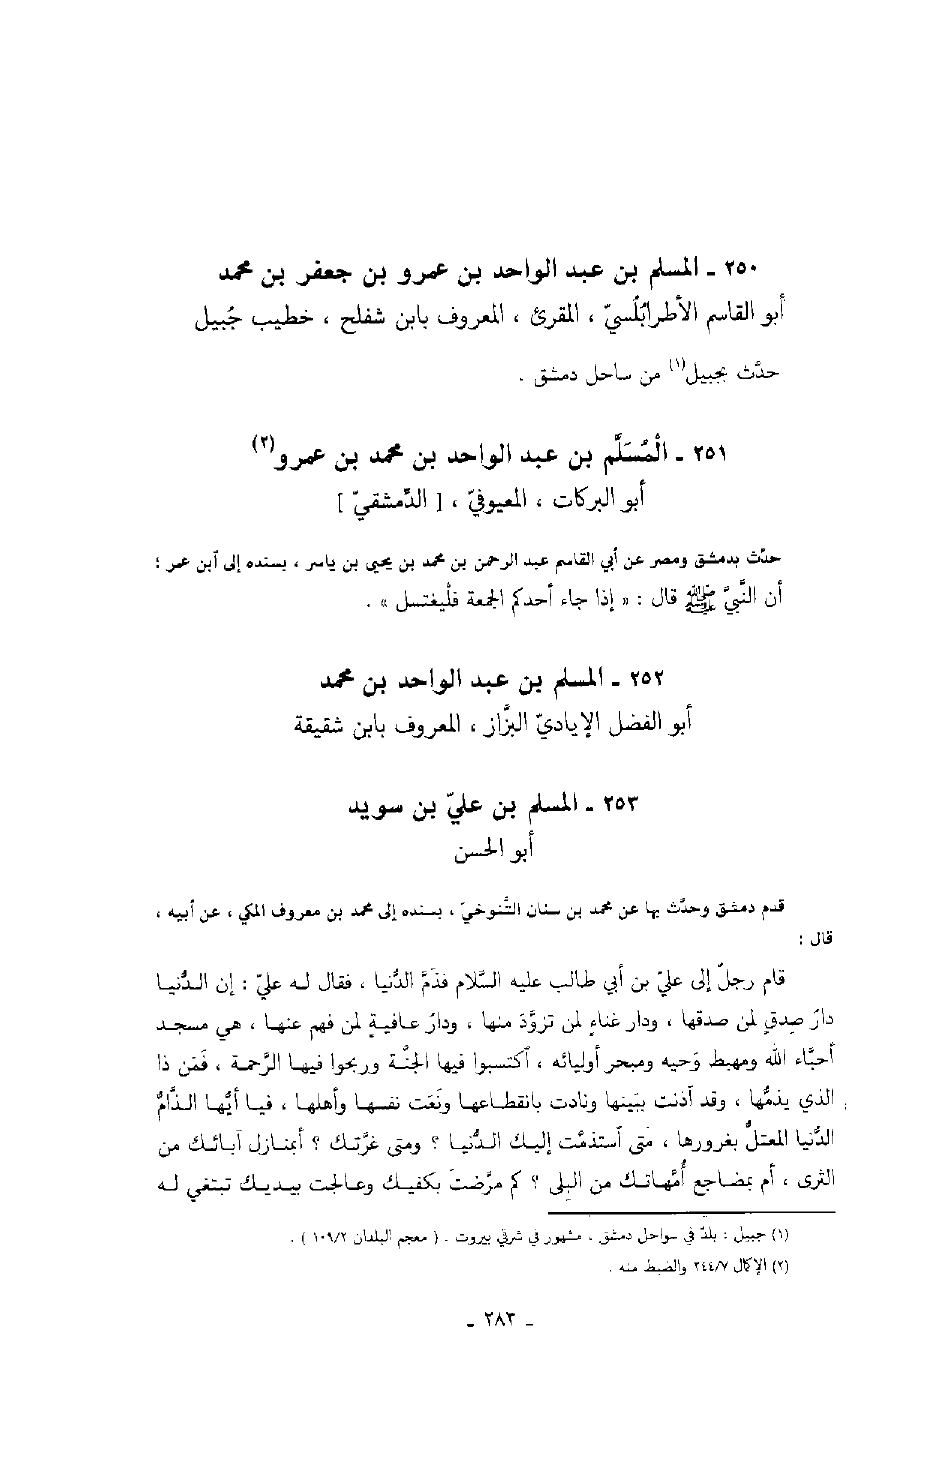 ٢٥٠ ـ المسلم بن عبد الواحد بن عمرو بن جعفر بن محمد
أبو القاسم الأطرابُلُسيّ ، المقرئ ، المعروف بابن شفلح ، خطيب جُبيل
حدَّث بجبيل(١) من ساحل دمشق .
٢٥١ ـ الْمُسَلَّم بن عبد الواحد بن محمد بن عمرو(٢)
أبو البركات ، المعيوفيّ ، [ الدِّمشقيّ ]
حدَّث بدمشق ومصر عن أبي القاسم عبد الرحمن بن محمد بن يحيى بن ياسر ، بسنده إلى آبن عمر ؛
أن النَّبيَّ ﷺ قال : « إذا جاء أحدكم الجمعة فلْيغتسل » .
٢٥٢ ـ المسلم بن عبد الواحد بن محمد
أبو الفضل الإياديّ البزَّاز ، المعروف بابن شقيقة
٢٥٣ ـ المسلم بن عليّ بن سويد
أبو الحسن
قدم دمشق وحدَّث بها عن محمد بن سنان التَّنوخيّ ، بسنده إلى محمد بن معروف المكي ، عن أبيه ،
قال :
قام رجلٌ إلى عليّ بن أبي طالب عليه السَّلام فذَمَّ الدُّنيا ، فقال له عليّ : إن الدُّنيا
دارُ صِدقٍ لمن صدقها ، ودار غناءٍ لمن تزوَّدَ منها ، ودارُ عافيةٍ لمن فهم عنها ، هي مسجد
أحبَّاء الله ومهبط وَحيه ومبحر أوليائه ، آكتسبوا فيها الجنَّة وربحوا فيها الرَّحمة ، فَمَن ذا
الذي يذمُّها ، وقد آذنت ببَينها ونادت بانقطاعها ونَعَت نفسها وأهلها ، فيا أيُّها الذَّامُّ
الدُّنيا المعتلُّ بغرورها ، مَتى آستذمَّت إليك الدُّنيا ؟ ومتى غرَّتك ؟ أبمنازل آبائك من
الثرى ، أم بمضاجع أُمَّهاتك من البِلى ؟ كم مرَّضتَ بكفيك وعالجت بيديك تبتغي له
(١) جبيل : بلدٌ في سواحل دمشق ، مشهور في شرقي بيروت . ( معجم البلدان ١٠٩/٢ ) .
(٢) الإكمال ٢٤٤/٧ والضبط منه .
ـ ٢٨٣ ـ